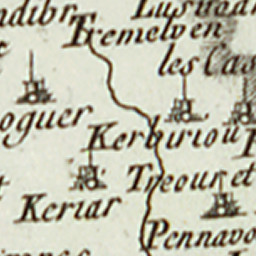 Tremelven
les Cas
oguer
Kerbiriou
Treouret
Keriar
Pennavo